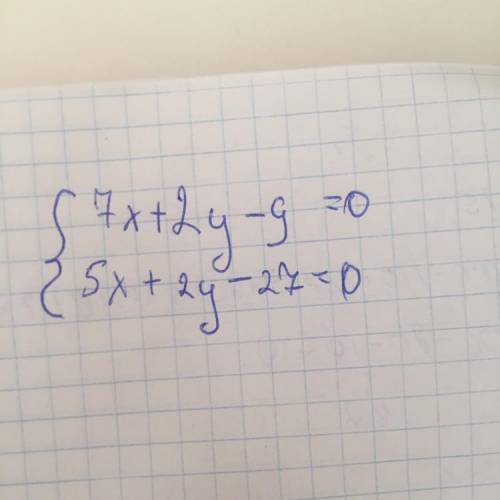 { 7x+2y-9=0
5x+2y-27=0